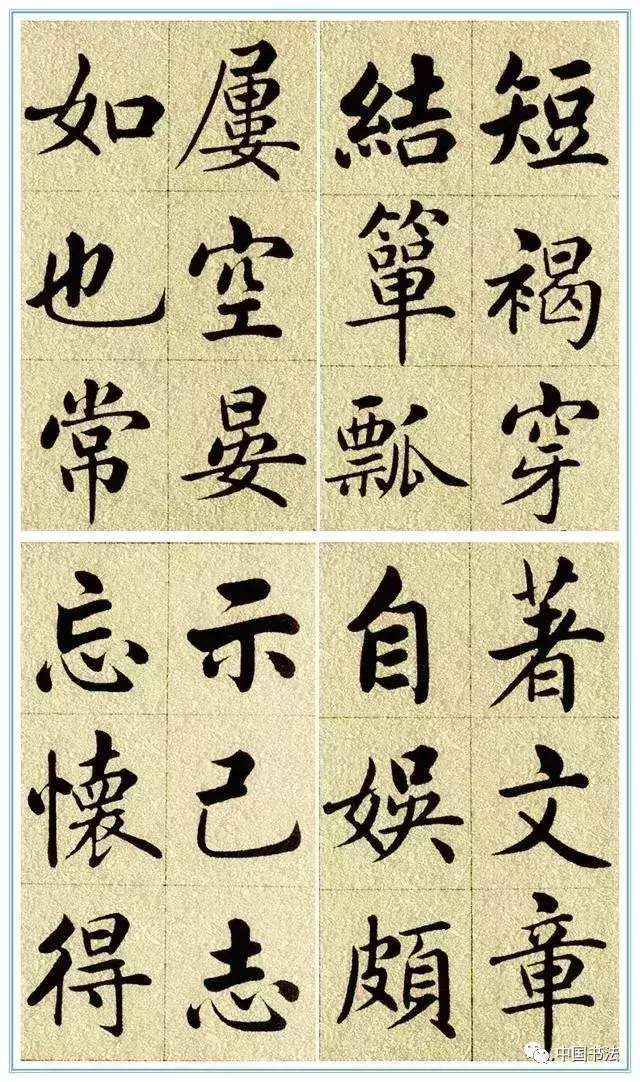 短褐穿
結簞瓢
屢空晏
如也常
著文章
自娛頗
示己志
忘懷得
中国书法